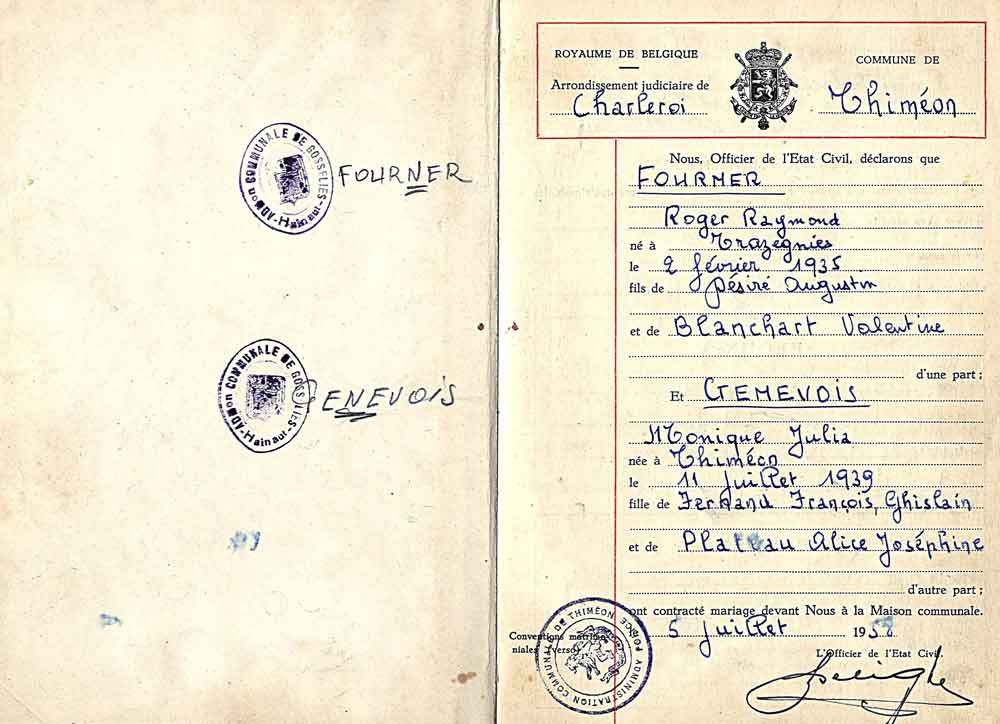 ADMon COMMUNALE DE GOSSELIES
-Hainaut-
FOURNER
ADMon COMMUNALE DE GOSSELIES
-Hainaut-
GENEVOIS
ROYAUME DE BELGIQUE
Arrondissement judiciaire de
Charleroi
COMMUNE DE
Thiméon
Nous, Officier de l'Etat Civil, déclarons que
FOURNER
Roger Raymond
né à Trazegnies
le 2 février 1935
fils de Désiré Augustin
et de Blanchart Valentine
d'une part ;
Et GENEVOIS
Monique Julia
née à Thiméon
le 11 juillet 1939
fille de Fernand François, Ghislain
et de Plateau Alice Joséphine
d'autre part ;
ont contracté mariage devant Nous à la Maison communale.
5 juillet 1958
Conventions matrimo-
niales (verso)
ADMINISTRATION COMMUNALE DE THIMÉON
L'Officier de l'Etat Civil.